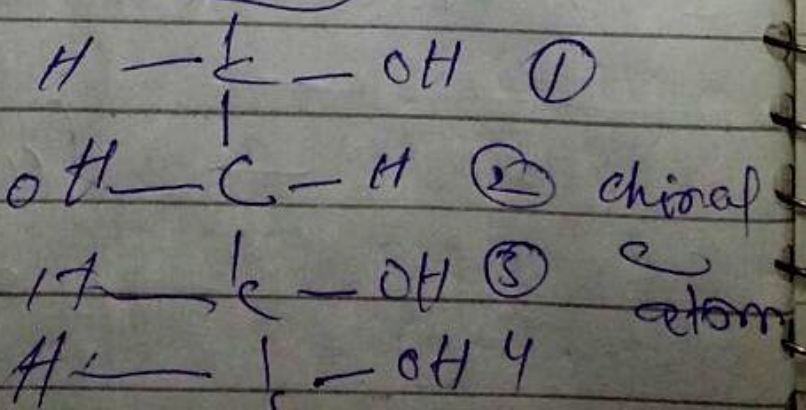 H — C — OH ①
OH — C — H ② chiral
H — C — OH ③ C
atom
H — C — OH 4